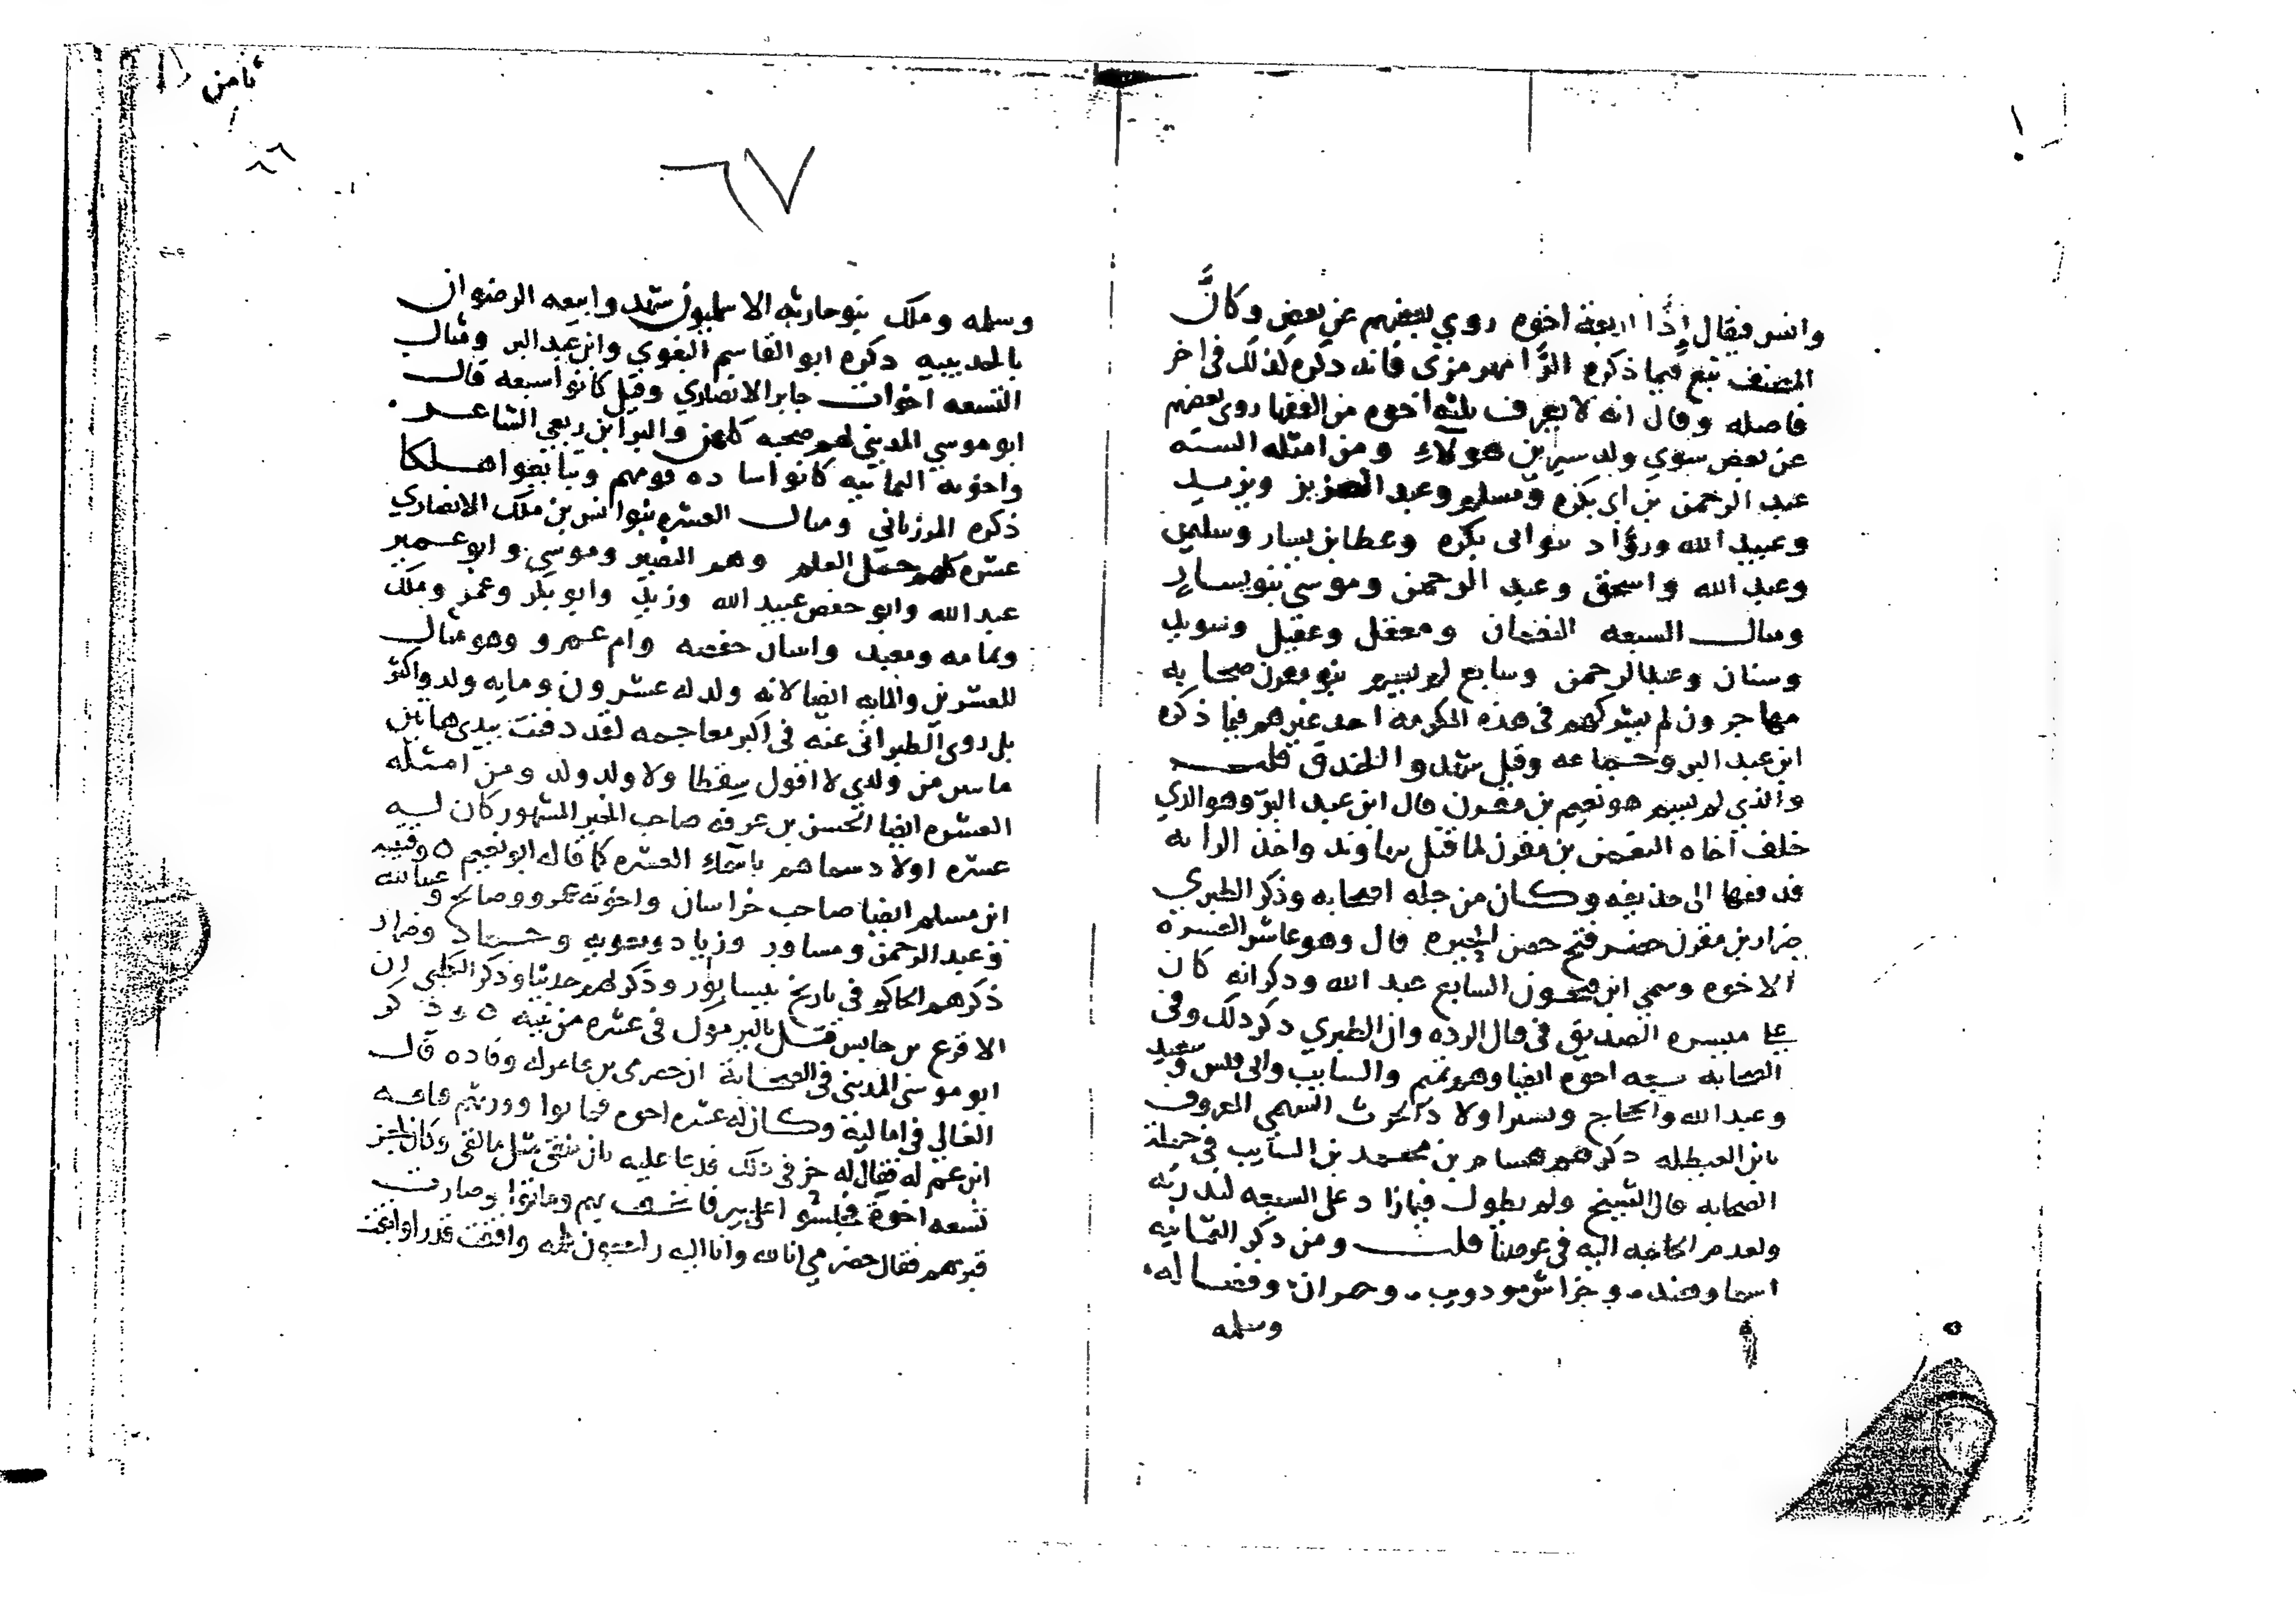 وانس فقال إذا اربعة اخوه روي بعضهم عن بعض وكانَّ
المصنف تبع فيما ذكره الرَّامهرمزي فانه ذكره كذلك في اخر
فاصله وقال انه لا يعرف ثلثه اخوه من الفقها روى بعضهم
عن بعض سوي ولد سيرين هولاءِ ومن امثله السته
عبد الرحمن بن ابي بكره ومسلم وعبد العزيز ويزيد
وعبيد الله وروّاد بنو ابى بكره وعطا بن يسار وسليمن
وعبد الله واسحق وعبد الرحمن وموسى بنو يسارٍ
ومثال السبعه النعمان ومعقل وعقيل وسويد
وسنان وعبد الرحمن وسابع لم يسم بنو مقرن صحابه
مهاجرون لم يشركهم في هذه المكرمه احد غيرهم فيما ذكره
ابن عبد البر وجماعه وقيل شهدوا الخندق قلت
والذي لم يسم هو نعيم بن مقرن قال ابن عبد البرّ وهو الذي
خلف اخاه النعمن بن مقرن لما قتل بنهاوند واخذ الرايه
فدفعها الى حذيفه وكان من جله اصحابه وذكر الطبري
ضرار بن مقرن حضر فتح حصن الحيره قال وهو عاشر العشرة
الاخوه وسمي ابن فتحون السابع عبد الله وذكر انه كان
على ميسره الصديق في قتال الرده وان الطبري ذكر ذلك وفى
الصحابه سبعه اخوه ايضا وهم تميم والسايب وابى قيس وسعيد
وعبد الله والحجاج وبشر اولاد الحرث السهمي المعروف
بابن الغيطله ذكرهم هشام بن محمد بن السايب في جملة
الصحابه قال الشيخ ولم يطول فيما زاد على السبعه لندرته
ولعدم الحاجه اليه في غرضنا قلت ومن ذكر الثمانيه
اسما وهند وخراش وذويب وحمران وفضاله
وسلمه
٦٧
ثامن
٦٦
وسلمه وملك بنو حارثه الاسلميون شهدوا بيعه الرضوان
بالحديبيه ذكره ابو القاسم البغوي وابن عبد البر ومثال
التسعه اخوات جابر الانصاري وقيل كانوا سبعه قال
ابو موسي المديني لهم صحبه كلهن والبرا بن ربعي الشاعر
واخوته الثمانيه كانوا ساده قومهم وتتابعوا هلكا
ذكره المرزباني ومثال العشره بنو انس بن ملك الانصاري
عشره كلهم حمل العلم وهم النضر وموسي وابو عمير
عبد الله وابو حفص عبيد الله وزيد وابو بكر وعمر وملك
وثمامه ومعبد واسان حفصه وام عمرو وهو مثال
للعشرين والمايه ايضا لانه ولد له عشرون ومايه ولد واكثر
بل روى الطبرانى عنه في اكبر معاجمه لقد دفنت بيدى هاتين
مايه من ولدي لا اقول سِقطا ولا ولد ولد ومن امثله
العشره ايضا الحسن بن عرفه صاحب الخبر المشهور كان ليه
عشره اولاد سماهم باسماءِ العشره كما قاله ابو نعيم ٥ وقتيبه
ابن مسلم ايضا صاحب خراسان واخوته عمرو وصالح وعبد الله
وعبد الرحمن ومساور وزياد ومعويه وحماد وضرار
ذكرهم الحاكم في تاريخ نيسابور وذكر لهم حديثا وذكر الكلبي ان
الاقرع بن حابس قتل باليرموك في عشره من بنيه ٥ وذكر
ابو موسى المديني في الصحابة ان حضرمى بن عامر له وفاده قال
القالي في اماليه وكان له عشره اخوه فماتوا وورثهم فلامه
ابن عم له فقال له خز في ذلك فدعا عليه بان يلقى مثل ما لقى وكان لجز
تسعه اخوة فجلسوا على بير فانخسفت بهم وماتوا وصارت
قبرهم فقال حضرمي انا لله وانا اليه راجعون كلمه وافقت قدرا وابقت